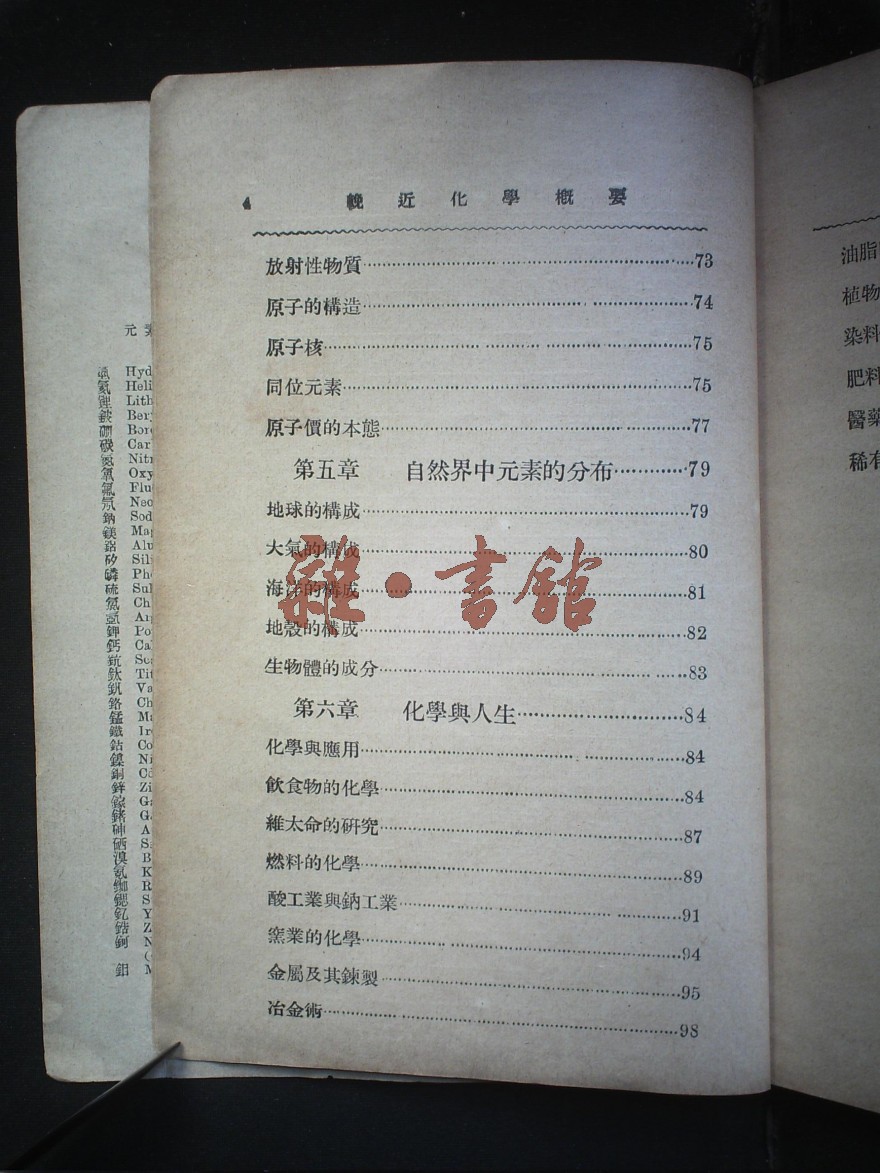 4 輓近化學概要
放射性物質……73
原子的構造……74
原子核……75
同位元素……75
原子價的本態……77
第五章 自然界中元素的分布……79
地球的構成……79
大氣的構成……80
海洋的構成……81
地殼的構成……82
生物體的成分……83
第六章 化學與人生……84
化學與應用……84
飲食物的化學……84
維太命的研究……87
燃料的化學……89
酸工業與鈉工業……91
窰業的化學……94
金屬及其鍊製……95
冶金術……98
雜·書館
元
Hyd
氦 Heli
鋰 Lith
Bery
硼 Boro
碳 Car
氮 Nitr
氧 Oxy
氟 Flu
氖 Neo
鈉 Sod
鎂 Mag
鋁 Alu
矽 Sili
磷 Pho
硫 Sul
氯 Ch
Arg
鉀 Po
鈣 Ca
Sca
鈦 Tit
釩 Va
鉻 Ch
錳 Ma
鐵 Iro
鈷 Co
鎳 Ni
銅 Co
鋅 Zi
鎵 Ga
鍺 G
砷 A
硒 S
溴 B
氪 K
銣 R
鍶 S
釔 Y
鋯 Z
鈳 N
鉬 M
油脂
植物
染料
肥料
醫藥
稀有